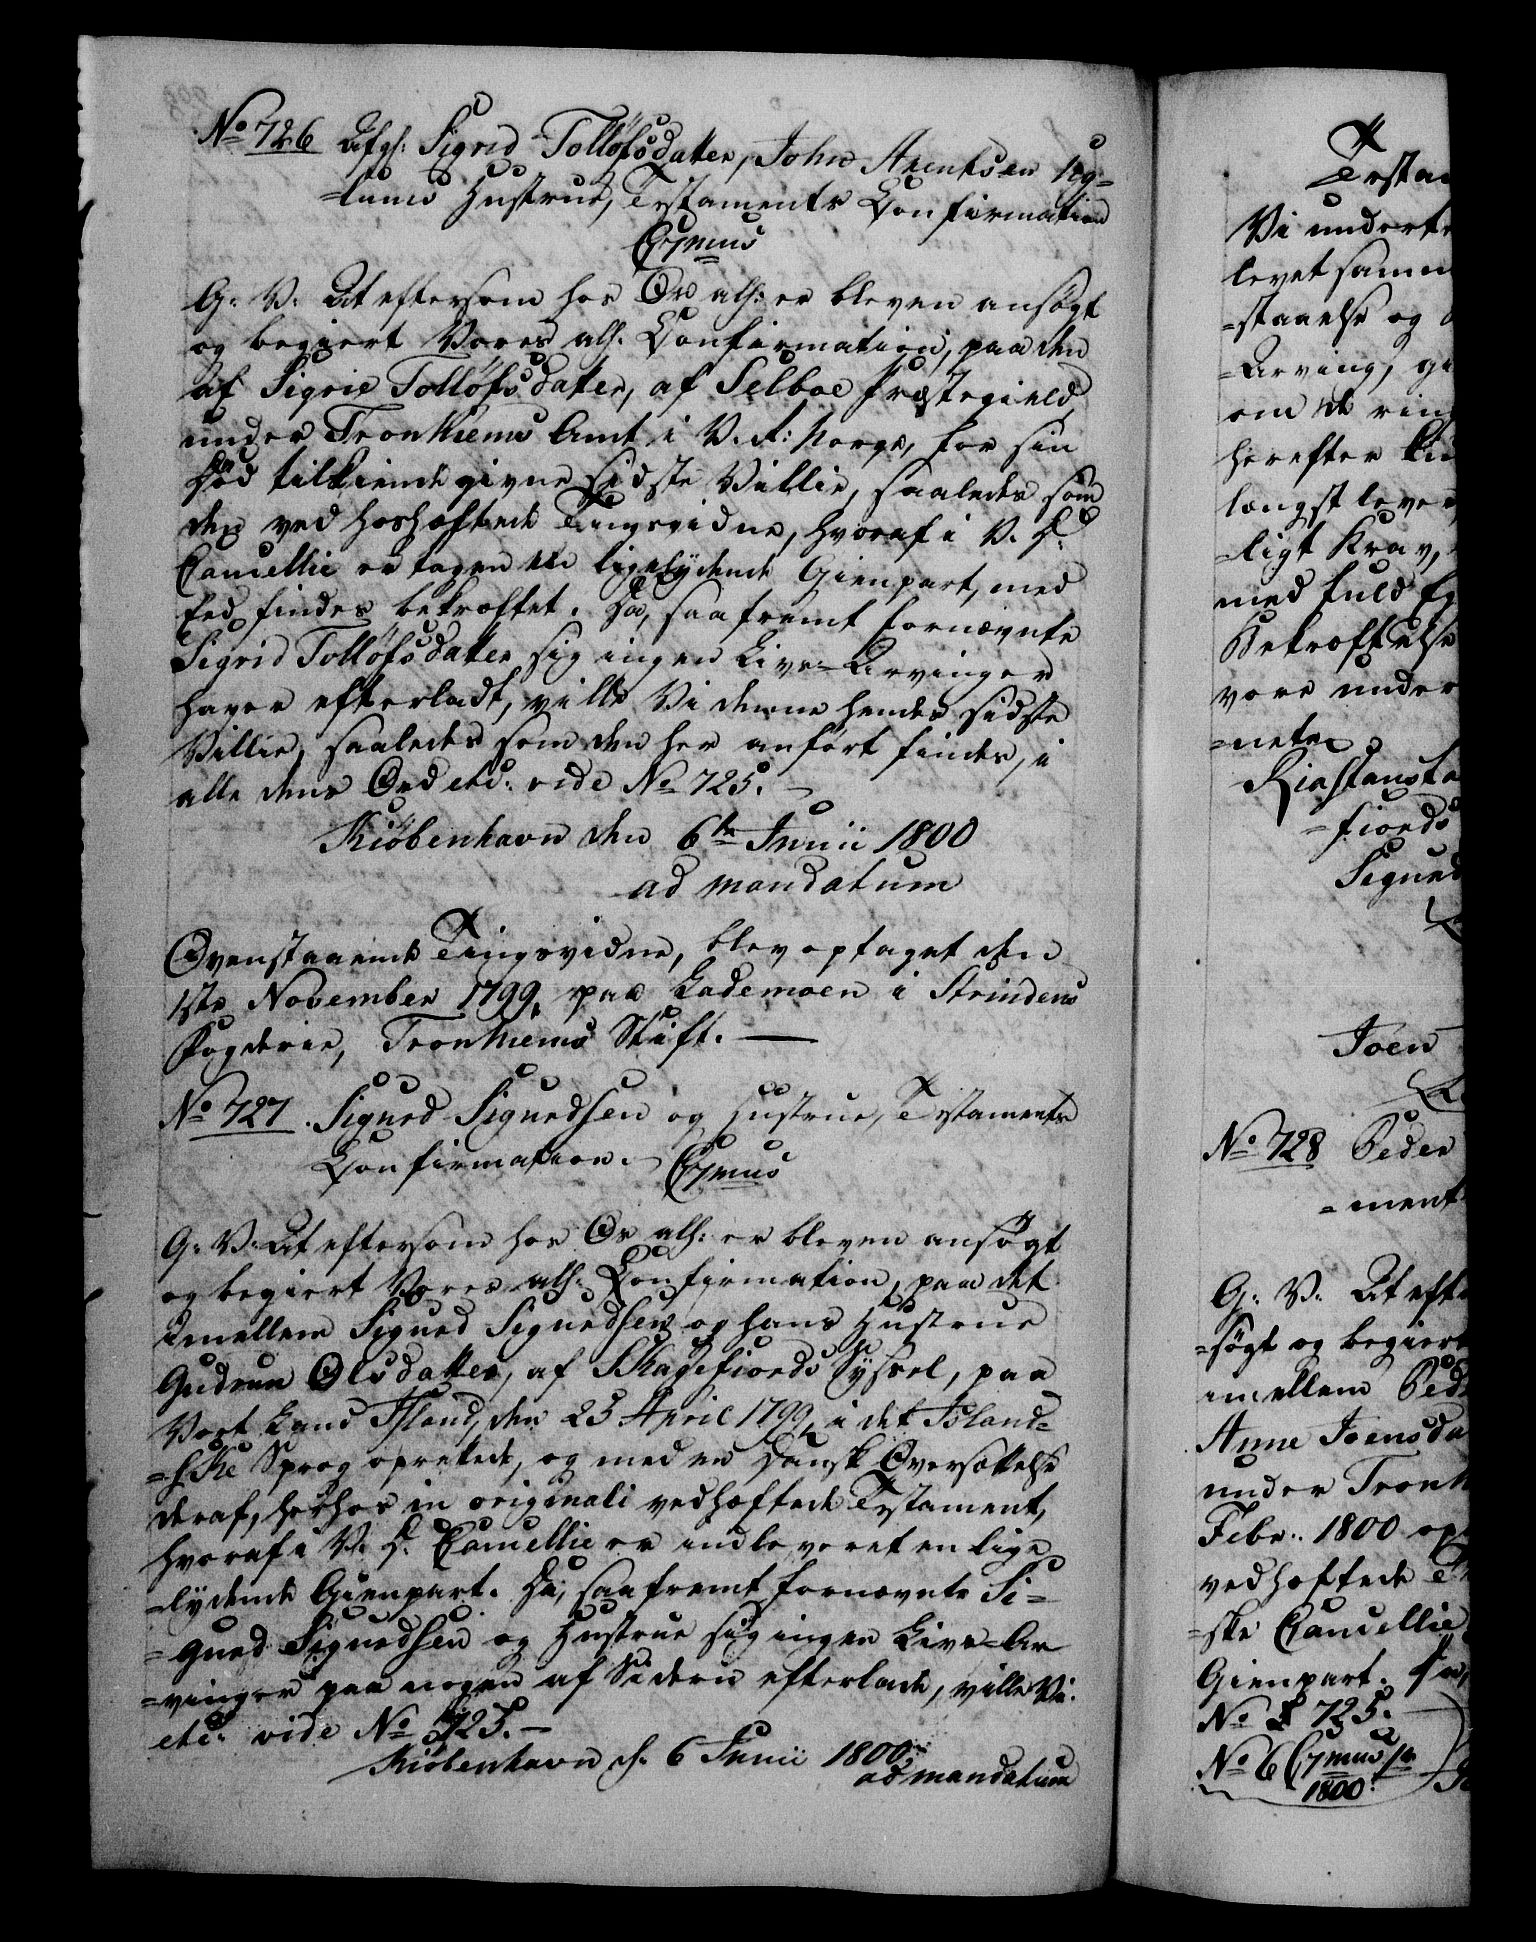 No 726 Afg: Sigrid Tolløfsdatter, John Arentsen Ug=
=lums Hustrue, Testaments Confirmation
Cr7mus
G: V: At eftersom hos Os alh: er bleven ansøgt
og begiert Vores alh. Confirmation, paa den
af Sigrid Tolløfsdatter, af Selboe Præstegield,
under Tronhiems Amt i V. R: Norge, før sin
Død tilkiendegivne sidste Villie, saaledes som
den ved hoshæftede Tingsvidne, hvoraf i V. D:
Cancellie er tagen en ligelydende Gienpart, med
Eed findes bekræftet. Da, saafremt fornævnte
Sigrid Tolløfsdatter sig ingen Livs-Arvinger
haver efterladt, ville Vi denne hendes sidste
Villie, saaledes som den her anført findes, i
alle dens Ord etc: vide No 725.
Kiöbenhavn den 6te Junii 1800
ad mandatum
Ovenstaaende Tingsvidne, blev optaget den
1ste November 1799, paa Lademoen i Strindens
Fogderie, Tronhiems Stift.
No 727. Sigurd Sigurdsen og Hustrue, Testaments
Confirmation. Cr7mus
G: V: At eftersom hos Os alh: er bleven ansøgt
og begiert Vores alh: Confirmation, paa det
imellem Sigurd Sigurdsen og hans Hustrue
Gudrun Olsdatter, af Skagefiords Syssel, paa
Vort Land Island, den 25 April 1799, i det Island=
=ske Sprog oprettede, og med en Dansk Oversættelse
deraf, herhos in originali vedhæftede Testament,
hvoraf i V. D. Cancellie er indleveret en lige
=lydende Gienpart. Da, saafremt fornævnte Si=
=gurd Sigurdsen og Hustrue sig ingen Livs-Ar
=vinger paa nogen af Siderne efterlade, ville Vi.
etc: vide No 725.
Kiöbenhavn d. 6 Junii 1800.
ad mandatum
Testam
Vi underte
levet samm
=staaelse og
Arving, gi
om de ring
herefter kun
længst leven
=ligt Krav,
med fuld Ej
Bekræftelse
vore under
=neter
=fiords
Sigurd
Joen
No 728 Peder
=ment
G: V: At eft
=søgt og begiere
imellem Ped
Anne Joensda
under Tronh
Febr: 1800 op
vedhæftede Te
=ske Cancellie
Gienpart. Da,
No 725.
No 6 Cr7mus
1800.